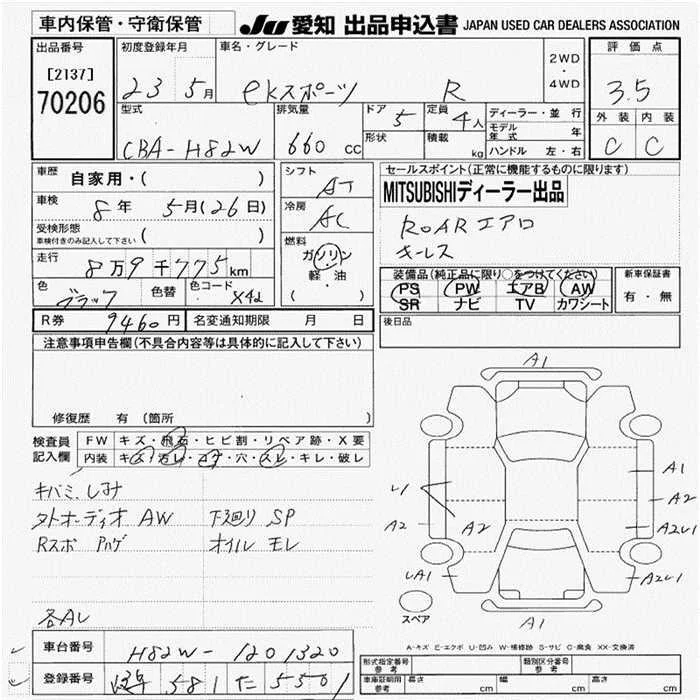 車内保管・守衛保管
JU 愛知 出品申込書 JAPAN USED CAR DEALERS ASSOCIATION
出品番号 [2137] 70206
初度登録年月 23 5月
車名・グレード eKスポーツ R
2WD・4WD
評価点 3.5
外装 C 内装 C
型式 CBA-H82W
排気量 660 cc
ドア 5
形状
定員 4人
積載 kg
ディーラー・並行
モデル年式 年
ハンドル 左・右
車歴 自家用・( )
車検 8年 5月(26日)
受検形態 車検付きのみ記入して下さい ( )
走行 8万9千775km
色 ブラック 色替 色コード X42
シフト AT
冷房 AC
燃料 ガソリン・軽油 ( )
セールスポイント(正常に機能するものに限ります)
MITSUBISHIディーラー出品
ROARエアロ
キーレス
装備品(純正品に限り○をつけてください)
PS PW エアB AW
SR ナビ TV カワシート
新車保証書 有・無
R券 9460円 名変通知期限 月 日
後日品
注意事項申告欄(不具合内容等は具体的に記入して下さい)
修復歴 有 (箇所
検査員記入欄 FW キズ・飛石・ヒビ割・リペア跡・X要
内装 キズ・汚レ・コゲ・穴・スレ・キレ・破レ
キバミ、しみ
外オーディオ AW 下廻り SP
Rスポ ハゲ オイル モレ
各AL
A1
A1
L1
A2
A2
A2
A2L1
LA1
A2L1
A1
スペア
A-キズ E-エクボ U-凹み W-補修跡 S-サビ C-腐食 XX-交換済
車台番号 H82W-1201320
登録番号 581 た 5501
形式指定番号 参考 類別区分番号 参考
車庫証明用 参考 長さ cm 幅 cm 高さ cm